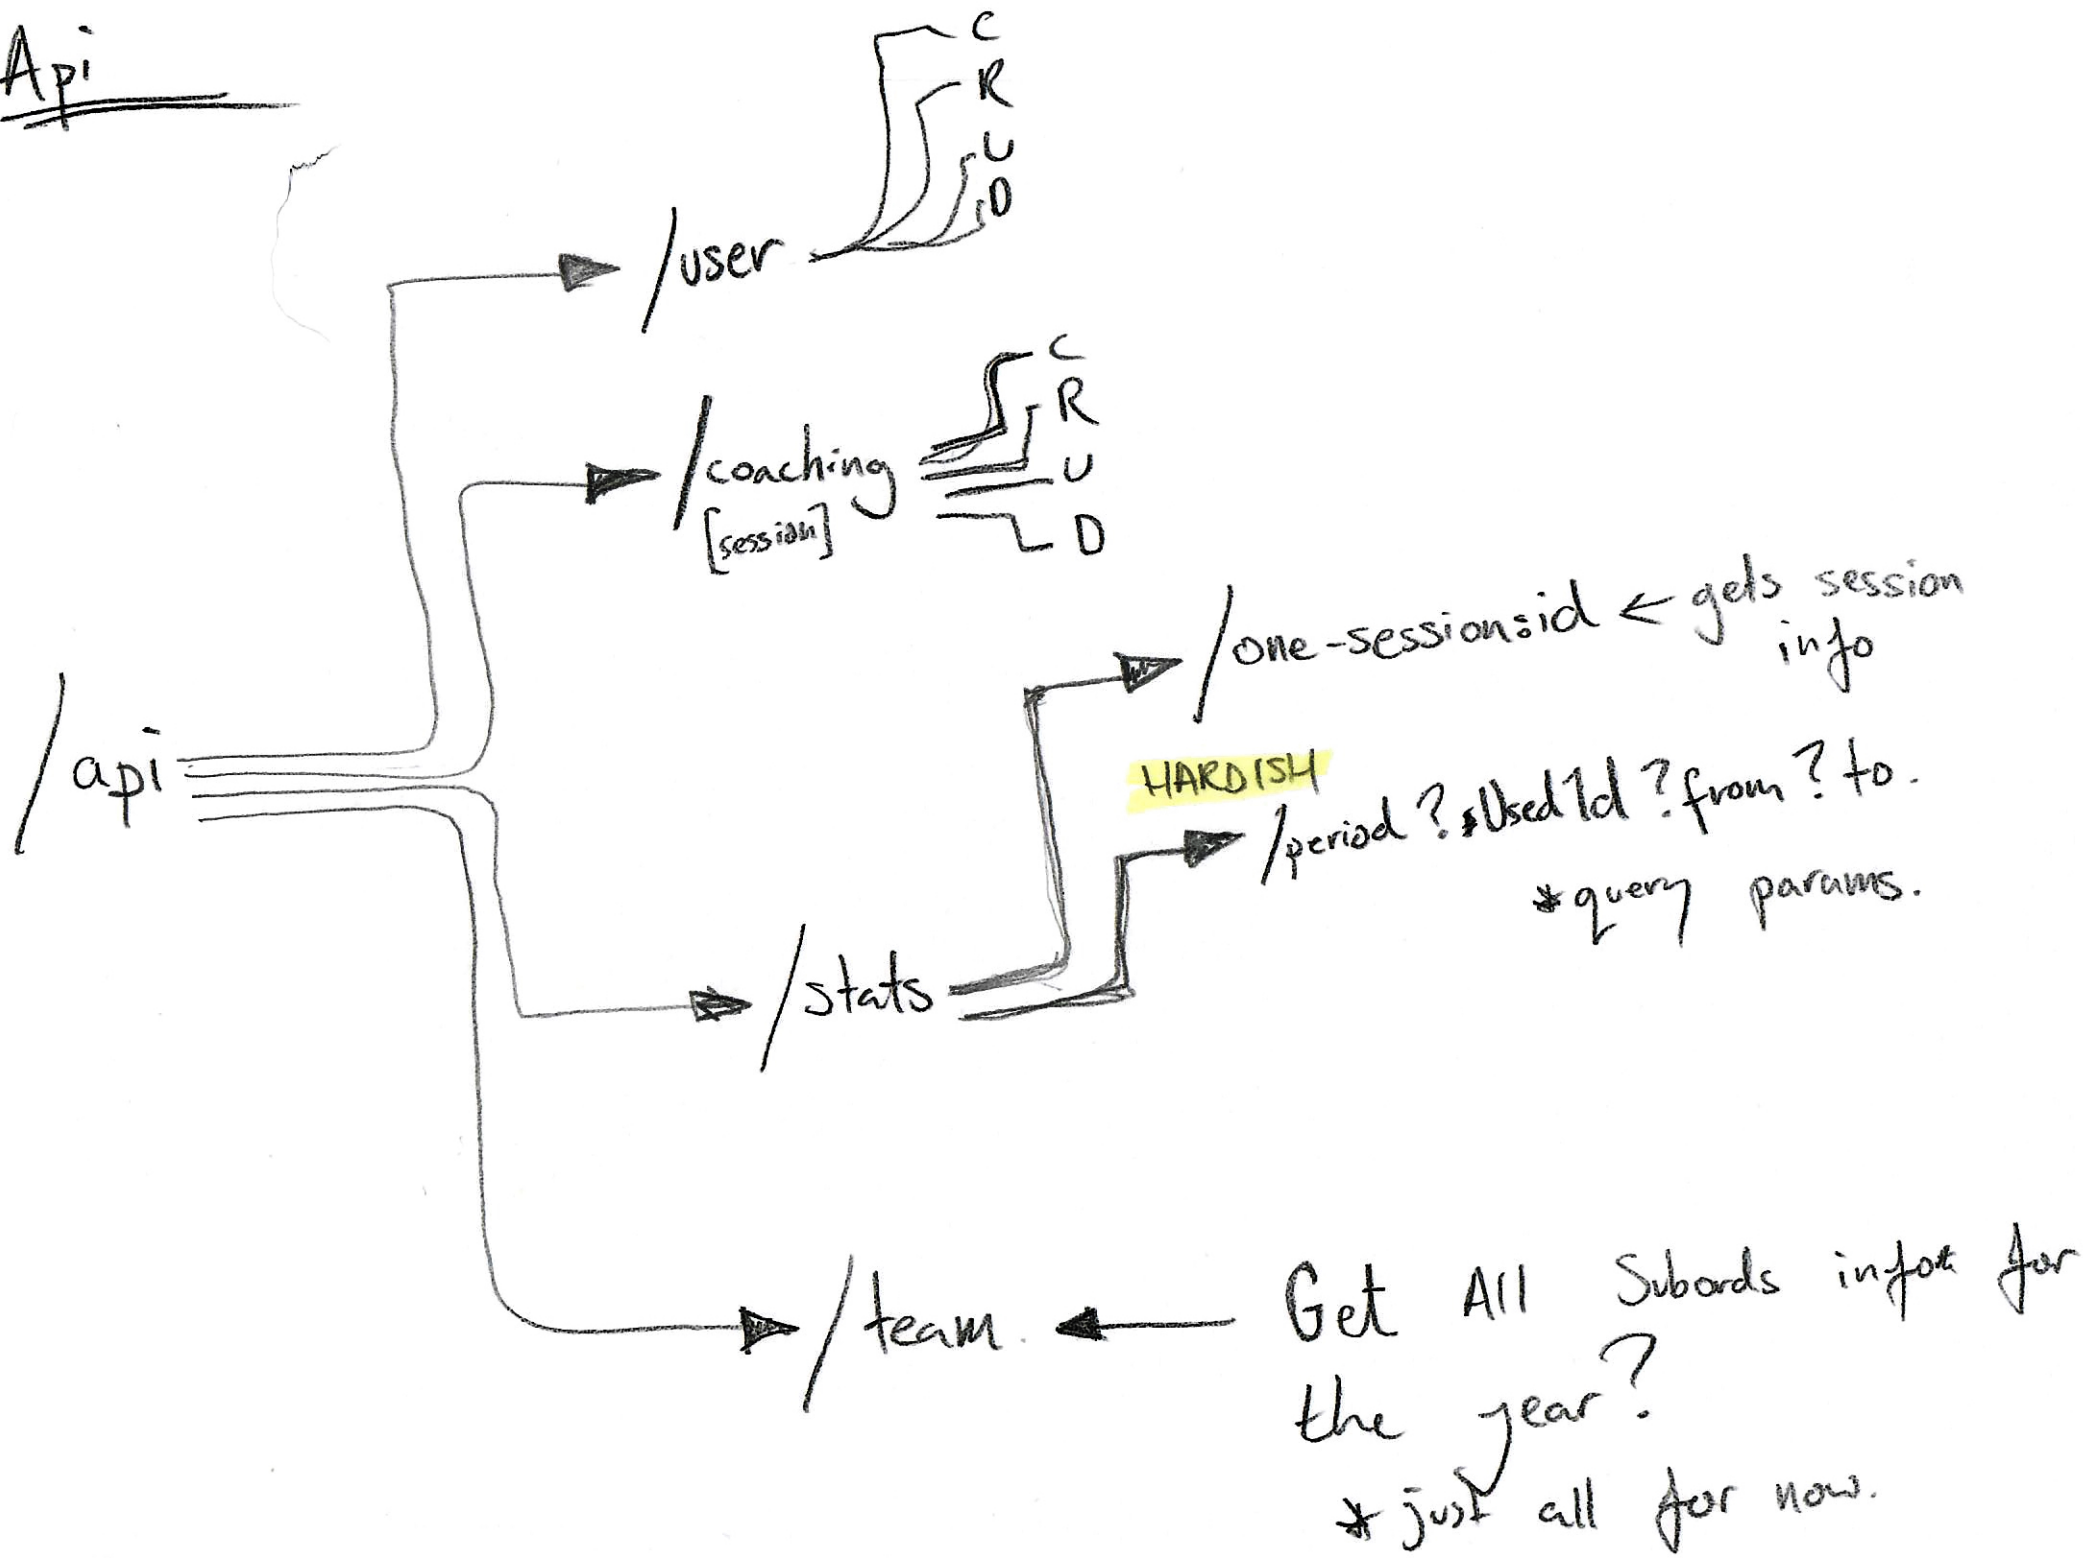 Api
C
R
U
D
/user
C
R
U
D
/coaching
[session]
/one-session:id ← gets session
info
/api
HARDISH
/period ? UsedId ? from ? to.
*query params.
/stats
/team. Get All Subords info* for
the year?
* just all for now.